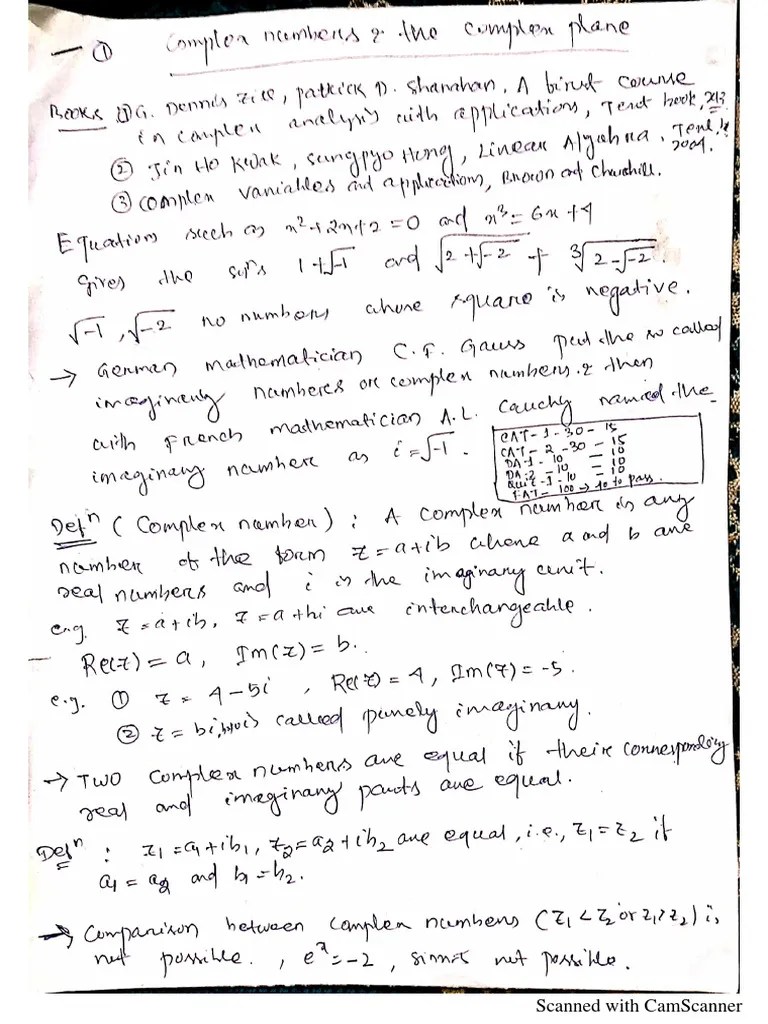 — ① Complex numbers & the complex plane
Books ① G. Dennis Zill, Patrick D. Shanahan, A first course
in complex analysis with applications, Text book,
② Jin Ho Kwak, Sungpyo Hong, Linear Algebra, 2004.
③ Complex variables and applications, Brown and Churchill.
Equations such as x²+2x+2=0 and x³=6x+4
gives the solⁿs 1+√-1 and √2+√-2 + ∛2-√-2.
√-1, √-2 no numbers whose square is negative.
→ German mathematician C.F. Gauss put the so called
imaginary numbers or complex numbers & then
with French mathematician A.L. Cauchy named the
imaginary number as i=√-1.
CAT-1-30-15
CAT-2-30-15
DA-1-10-10
DA-2-10-10
Quiz-1-10-10
FAT-100→40 to pass.
Defⁿ (Complex number): A complex number is any
number of the form z=a+ib where a and b are
real numbers and i is the imaginary unit.
e.g. z=a+ib, z=a+bi are interchangeable.
Re(z)=a, Im(z)=b.
e.g. ① z=4-5i, Re(z)=4, Im(z)=-5.
② z=bi, b≠0 is called purely imaginary.
→ Two complex numbers are equal if their corresponding
real and imaginary parts are equal.
Defⁿ: z₁=a₁+ib₁, z₂=a₂+ib₂ are equal, i.e., z₁=z₂ if
a₁=a₂ and b₁=b₂.
→ Comparison between complex numbers (z₁<z₂ or z₁>z₂) is
not possible., not possible.
Scanned with CamScanner